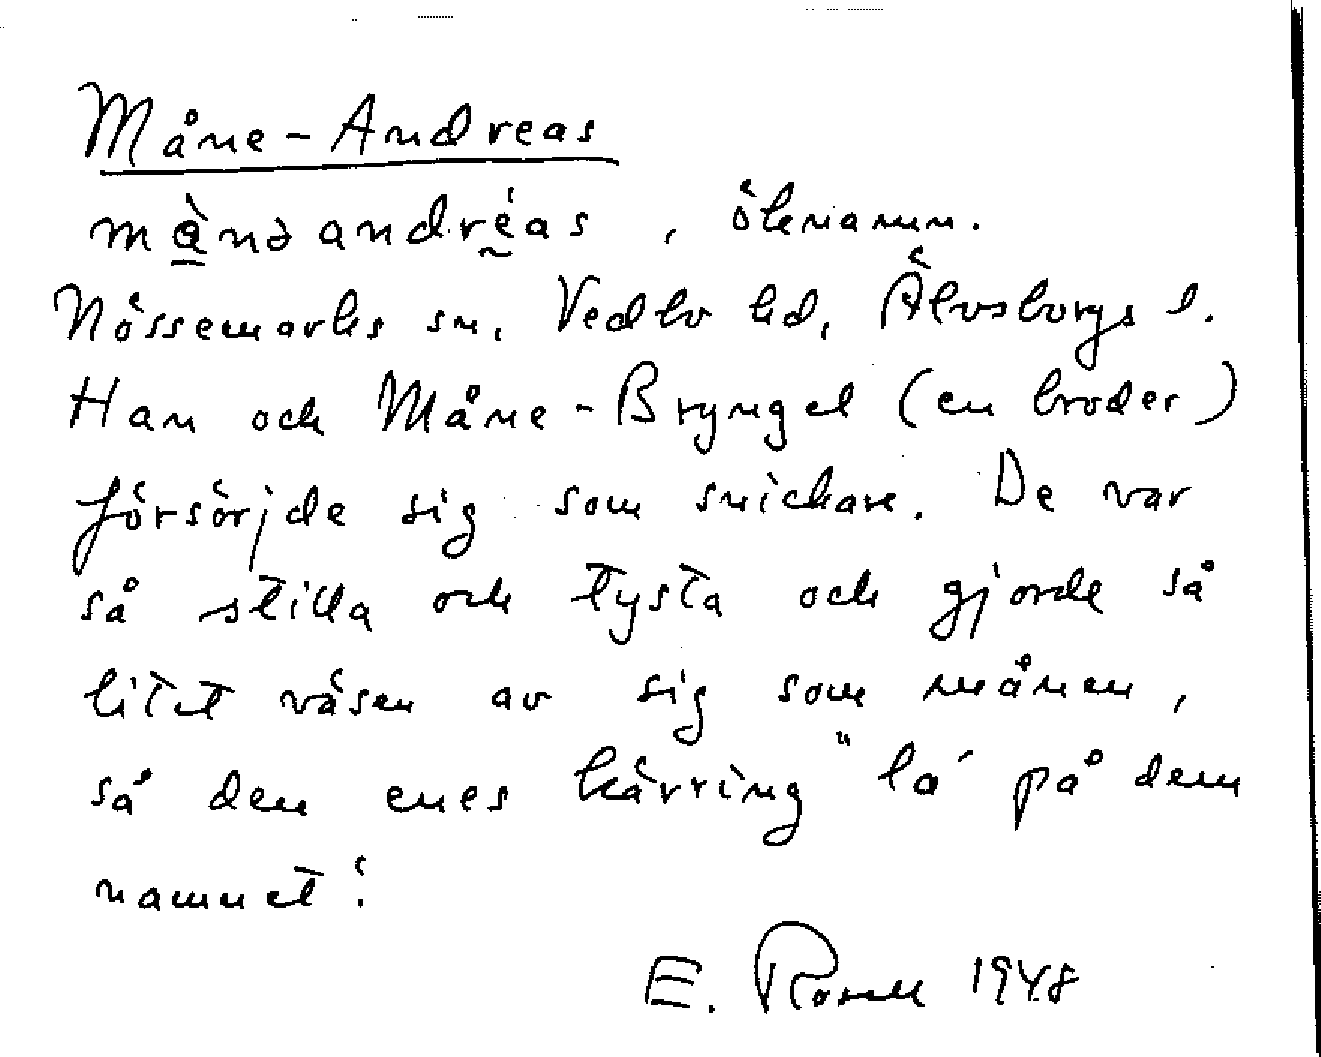 Måne-Andreas
mànəandréas, öknamn.
Nössemarks sn, Vedbo hd, Älvsborgs l.
Han och Måne-Bryngel (en broder)
försörjde sig som snickare. De var
så stilla och tysta och gjorde så
litet väsen av sig som månen,
så den enes kärring "la' på dem
namnet".
E. Rosell 1948